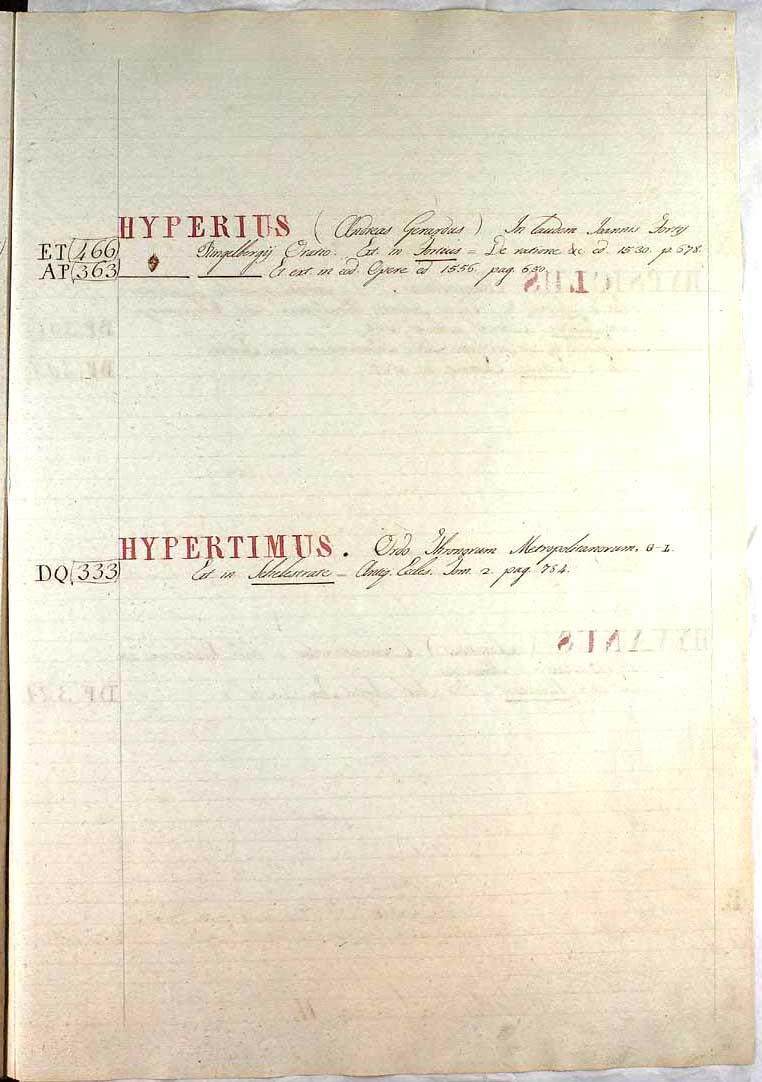 HYPERIUS (Andreas Gerardus) In laudem Joannis Fortij
ET 466 Ringelbergij Oratio. Ext. in Fortius = De ratione &c ed. 1530. p. 678.
AP 363 Et ext. in eod. Opere ed 1556. pag. 650.
HYPERTIMUS. Ordo Thronorum Metropolitanorum. G-L.
DQ 333 Ext. in Schelestrate = Antiq. Eccles. Tom. 2. pag. 784.